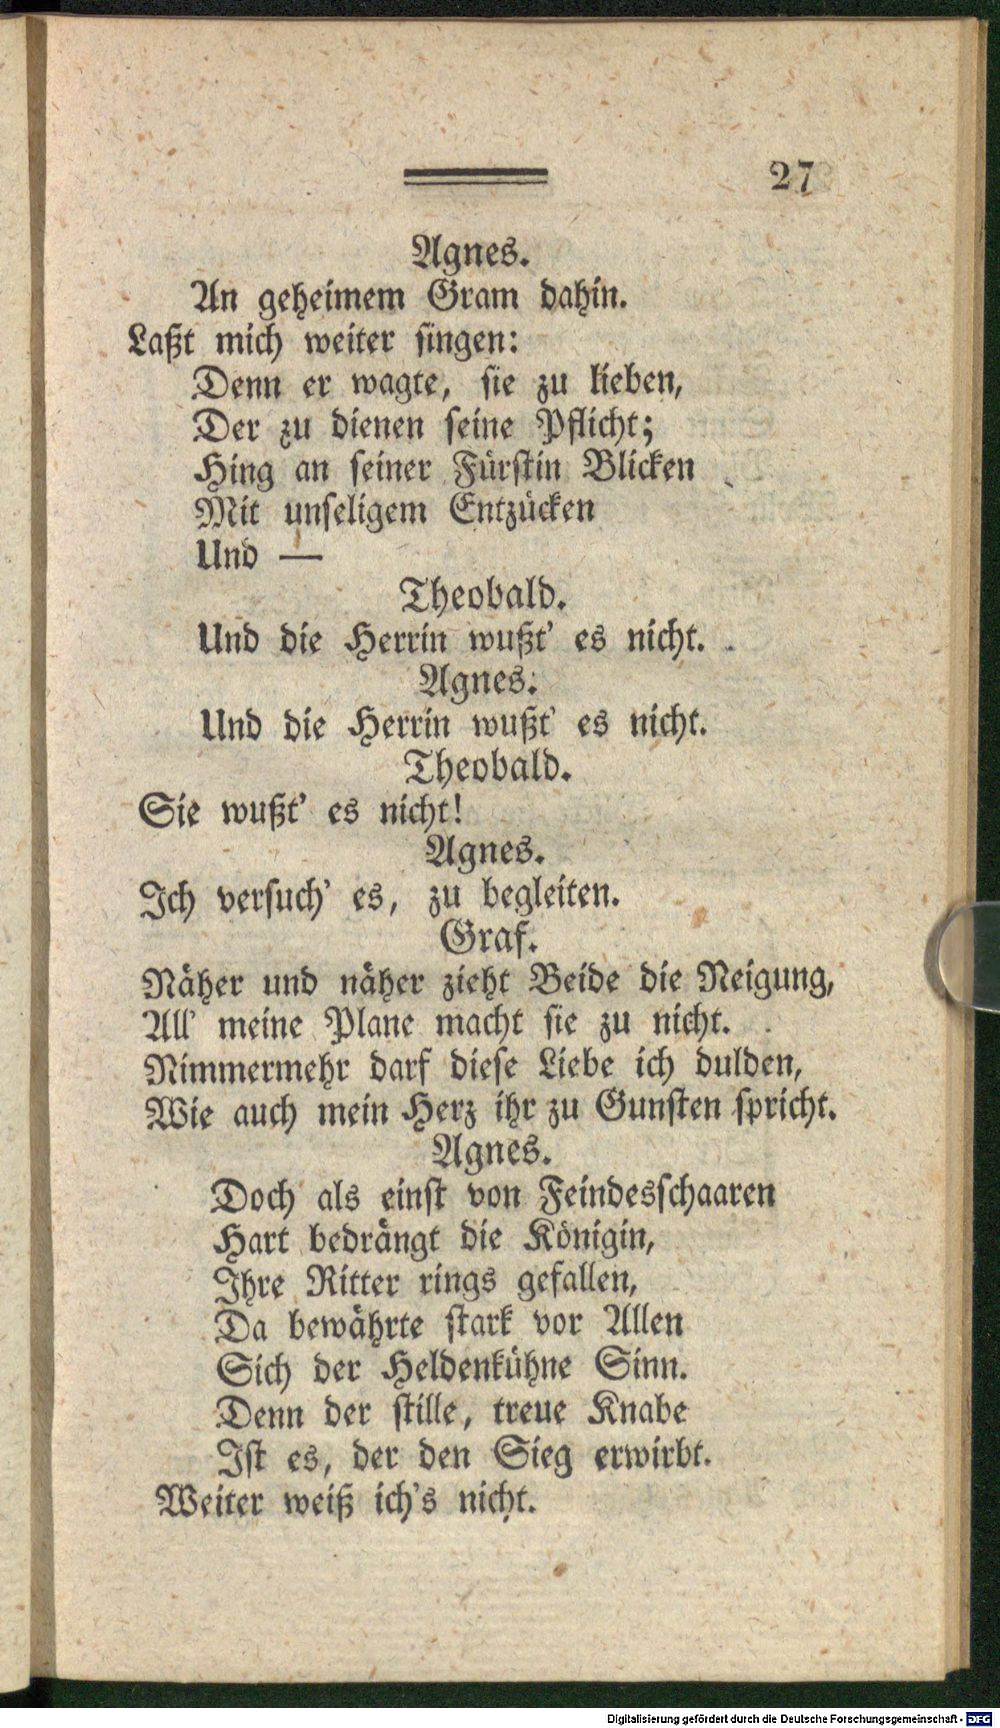 27
Agnes.
An geheimem Gram dahin.
Laßt mich weiter singen:
Denn er wagte, sie zu lieben,
Der zu dienen seine Pflicht;
Hing an seiner Fürstin Blicken
Mit unseligem Entzücken
Und —
Theobald.
Und die Herrin wußt' es nicht.
Agnes.
Und die Herrin wußt' es nicht.
Theobald.
Sie wußt' es nicht!
Agnes.
Ich versuch' es, zu begleiten.
Graf.
Näher und näher zieht Beide die Neigung,
All' meine Plane macht sie zu nicht.
Nimmermehr darf diese Liebe ich dulden,
Wie auch mein Herz ihr zu Gunsten spricht.
Agnes.
Doch als einst von Feindesschaaren
Hart bedrängt die Königin,
Ihre Ritter rings gefallen,
Da bewährte stark vor Allen
Sich der Heldenkühne Sinn.
Denn der stille, treue Knabe
Ist es, der den Sieg erwirbt.
Weiter weiß ich's nicht.
Digitalisierung gefördert durch die Deutsche Forschungsgemeinschaft - DFG